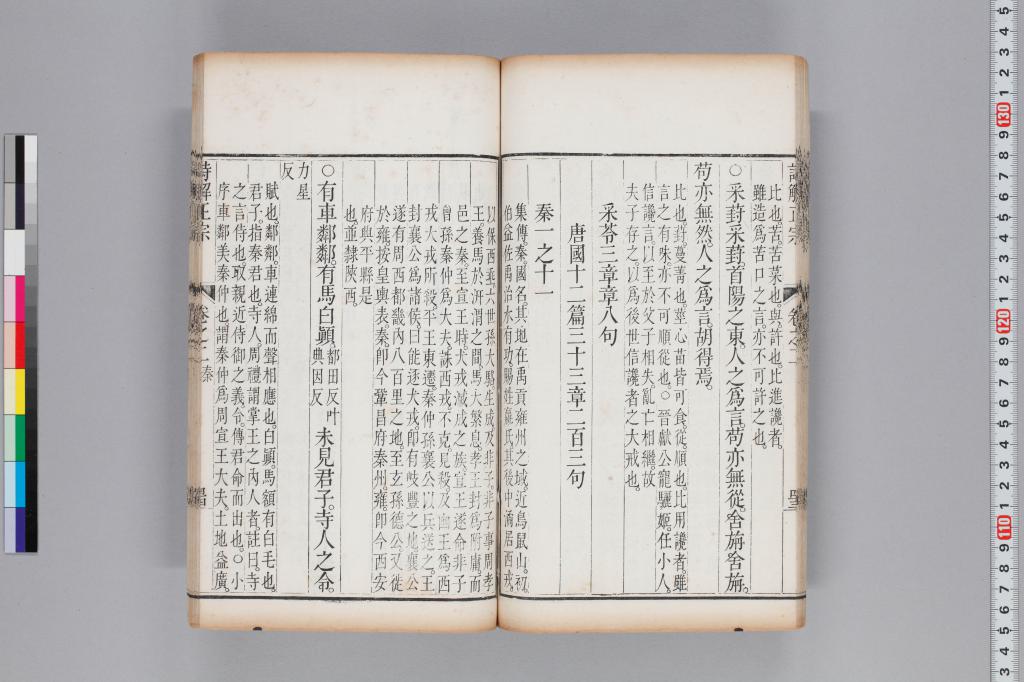 詩解正宗 卷之二
比也。苦。苦菜也。與。許也。比進讒者。
雖造爲苦口之言。亦不可許之也。
○采葑采葑。首陽之東。人之爲言。苟亦無從。舍旃舍旃。
苟亦無然。人之爲言。胡得焉。
比也。葑。蔓菁也。莖心苗皆可食。從。順也。比用讒者。雖
言之有味。亦不可順從也。○晉獻公寵驪姬。任小人。
信讒言。以至於父子相失。亂亡相繼。故
夫子存之。以爲後世信讒者之大戒也。
采苓三章章八句
唐國十二篇三十三章二百三句
秦一之十一
集傳。秦。國名。其地在禹貢雍州之域。近鳥鼠山。初。
伯益佐禹治水有功。賜姓嬴氏。其後中潏居西戎。
以保西垂。六世孫大駱。生成及非子。非子事周孝
王。養馬於汧渭之閒。馬大繁息。孝王封爲附庸。而
邑之秦。至宣王時。犬戎滅成之族。宣王遂命非子
曾孫秦仲爲大夫。誅西戎。不克。見殺。及幽王爲西
戎犬戎所殺。平王東遷。秦仲孫襄公以兵送之。王
封襄公爲諸侯。曰。能逐犬戎。卽有岐豐之地。襄公
遂有周西都畿內八百里之地。至玄孫德公。又徙
於雍。按皇輿表。秦。卽今鞏昌府秦州。雍。卽今西安
府興平縣是
也。並隸陝西。
○有車鄰鄰。有馬白顚。都田反叶典因反 未見君子。寺人之令。
力星反
賦也。鄰鄰。車連綿而聲相應也。白顚。馬額有白毛也。
君子。指秦君也。寺人。周禮謂掌王之內人者。註曰。寺
之言侍也。取親近侍御之義。令。傳君命而出也。○小
序。車鄰。美秦仲也。謂秦仲爲周宣王大夫。土地益廣。
詩解正宗 卷之二 秦